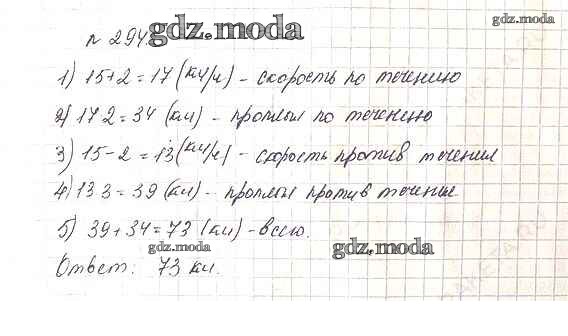 № 294 gdz.moda gdz.moda
1) 15+2=17 (км/ч) - скорость по течению
2) 17 2=34 (км) - проплыл по течению
3) 15-2=13 (км/ч) - скорость против течения
4) 13 3=39 (км) - проплыл против течение
5) 39+34=73 (км) - всего.
gdz.moda gdz.moda
Ответ: 73 км.